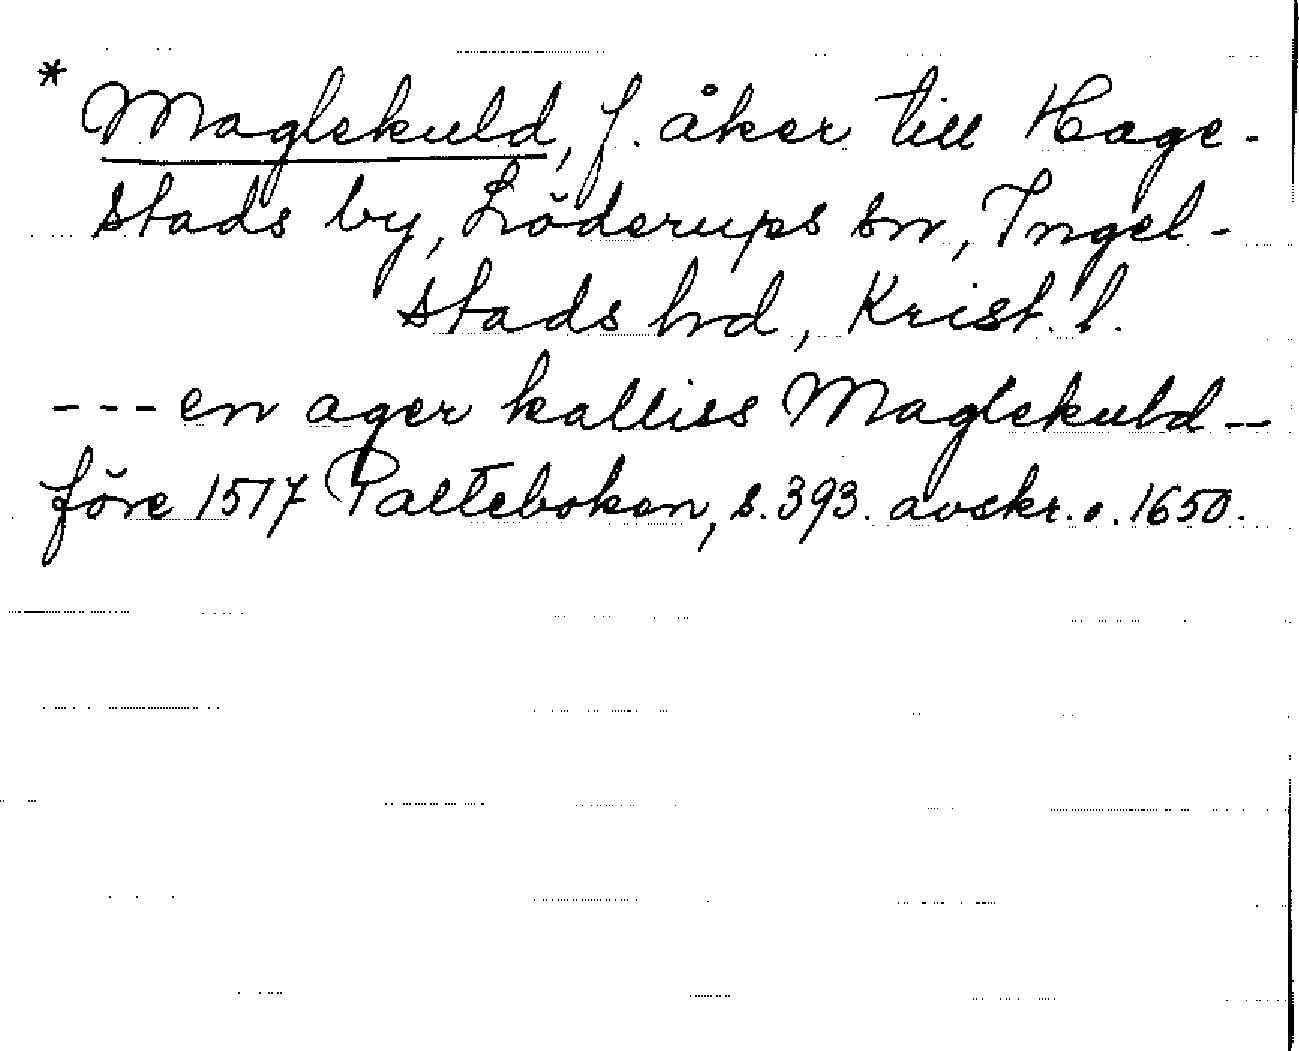 * Maglekuld, f. åker till Hage-
stads by, Löderups sn, Ingel-
stads hd, Krist. l.
--- en ager kalliss Maglekuld --
före 1517 Palteboken, s. 393. avskr. o. 1650.